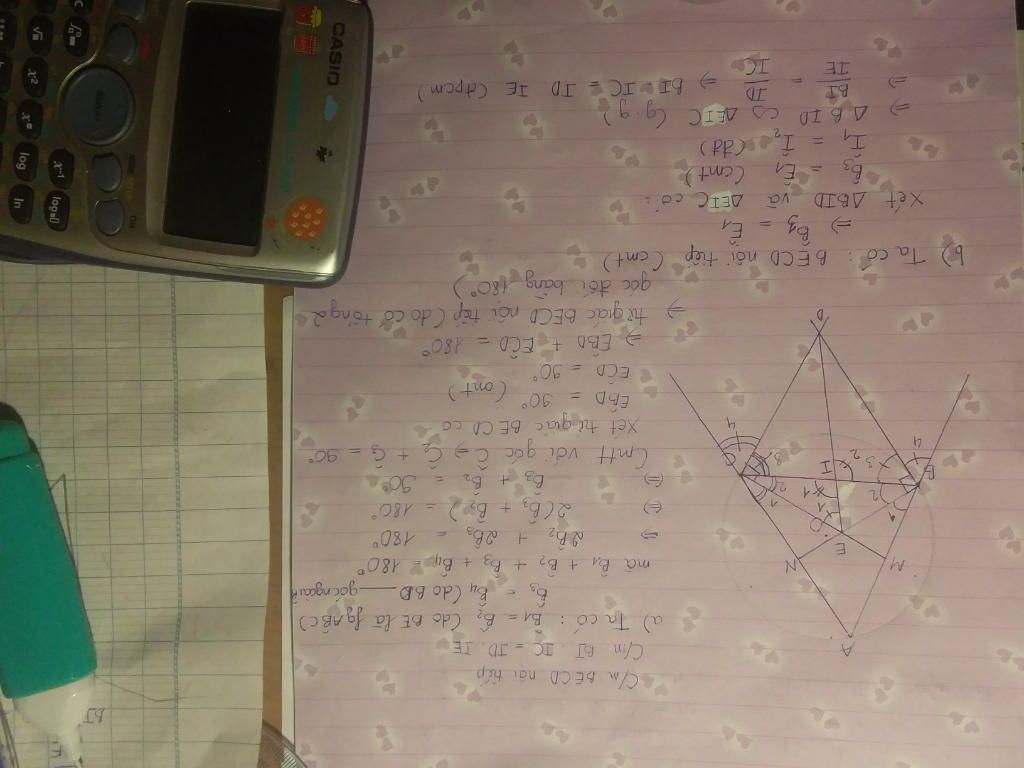 C/m BECD nội tiếp
C/m BI . IC = ID . IE
a) Ta có : B̂1 = B̂2 (do BE là fg AB̂C)
B̂3 = B̂4 (do BD góc ngoài
mà B̂1 + B̂2 + B̂3 + B̂4 = 180°
⇒ 2B̂2 + 2B̂3 = 180°
⇔ 2(B̂3 + B̂2) = 180°
⇔ B̂3 + B̂2 = 90°
Cmtt với góc Ĉ ⇒ Ĉ2 + Ĉ3 = 90°
Xét tứ giác BECD có
EB̂D = 90° (cmt)
EĈD = 90°
⇒ EB̂D + EĈD = 180°
⇒ tứ giác BECD nội tiếp (do có tổng 2
góc đối bằng 180°)
b) Ta có : BECD nội tiếp (cmt)
⇒ B̂3 = Ê1
Xét ΔBID và ΔEIC có :
B̂3 = Ê1 (cmt)
Î1 = Î2 (đđ)
⇒ ΔBID ∽ ΔEIC (g.g)
⇒ BI/IE = ID/IC ⇒ BI . IC = ID . IE (đpcm)
A
M
N
E
O
1
1
1
2
B
I
2
3
C
4
3 2
4
D
CASIO
ON
log
ln
x²
x⁻¹
BI